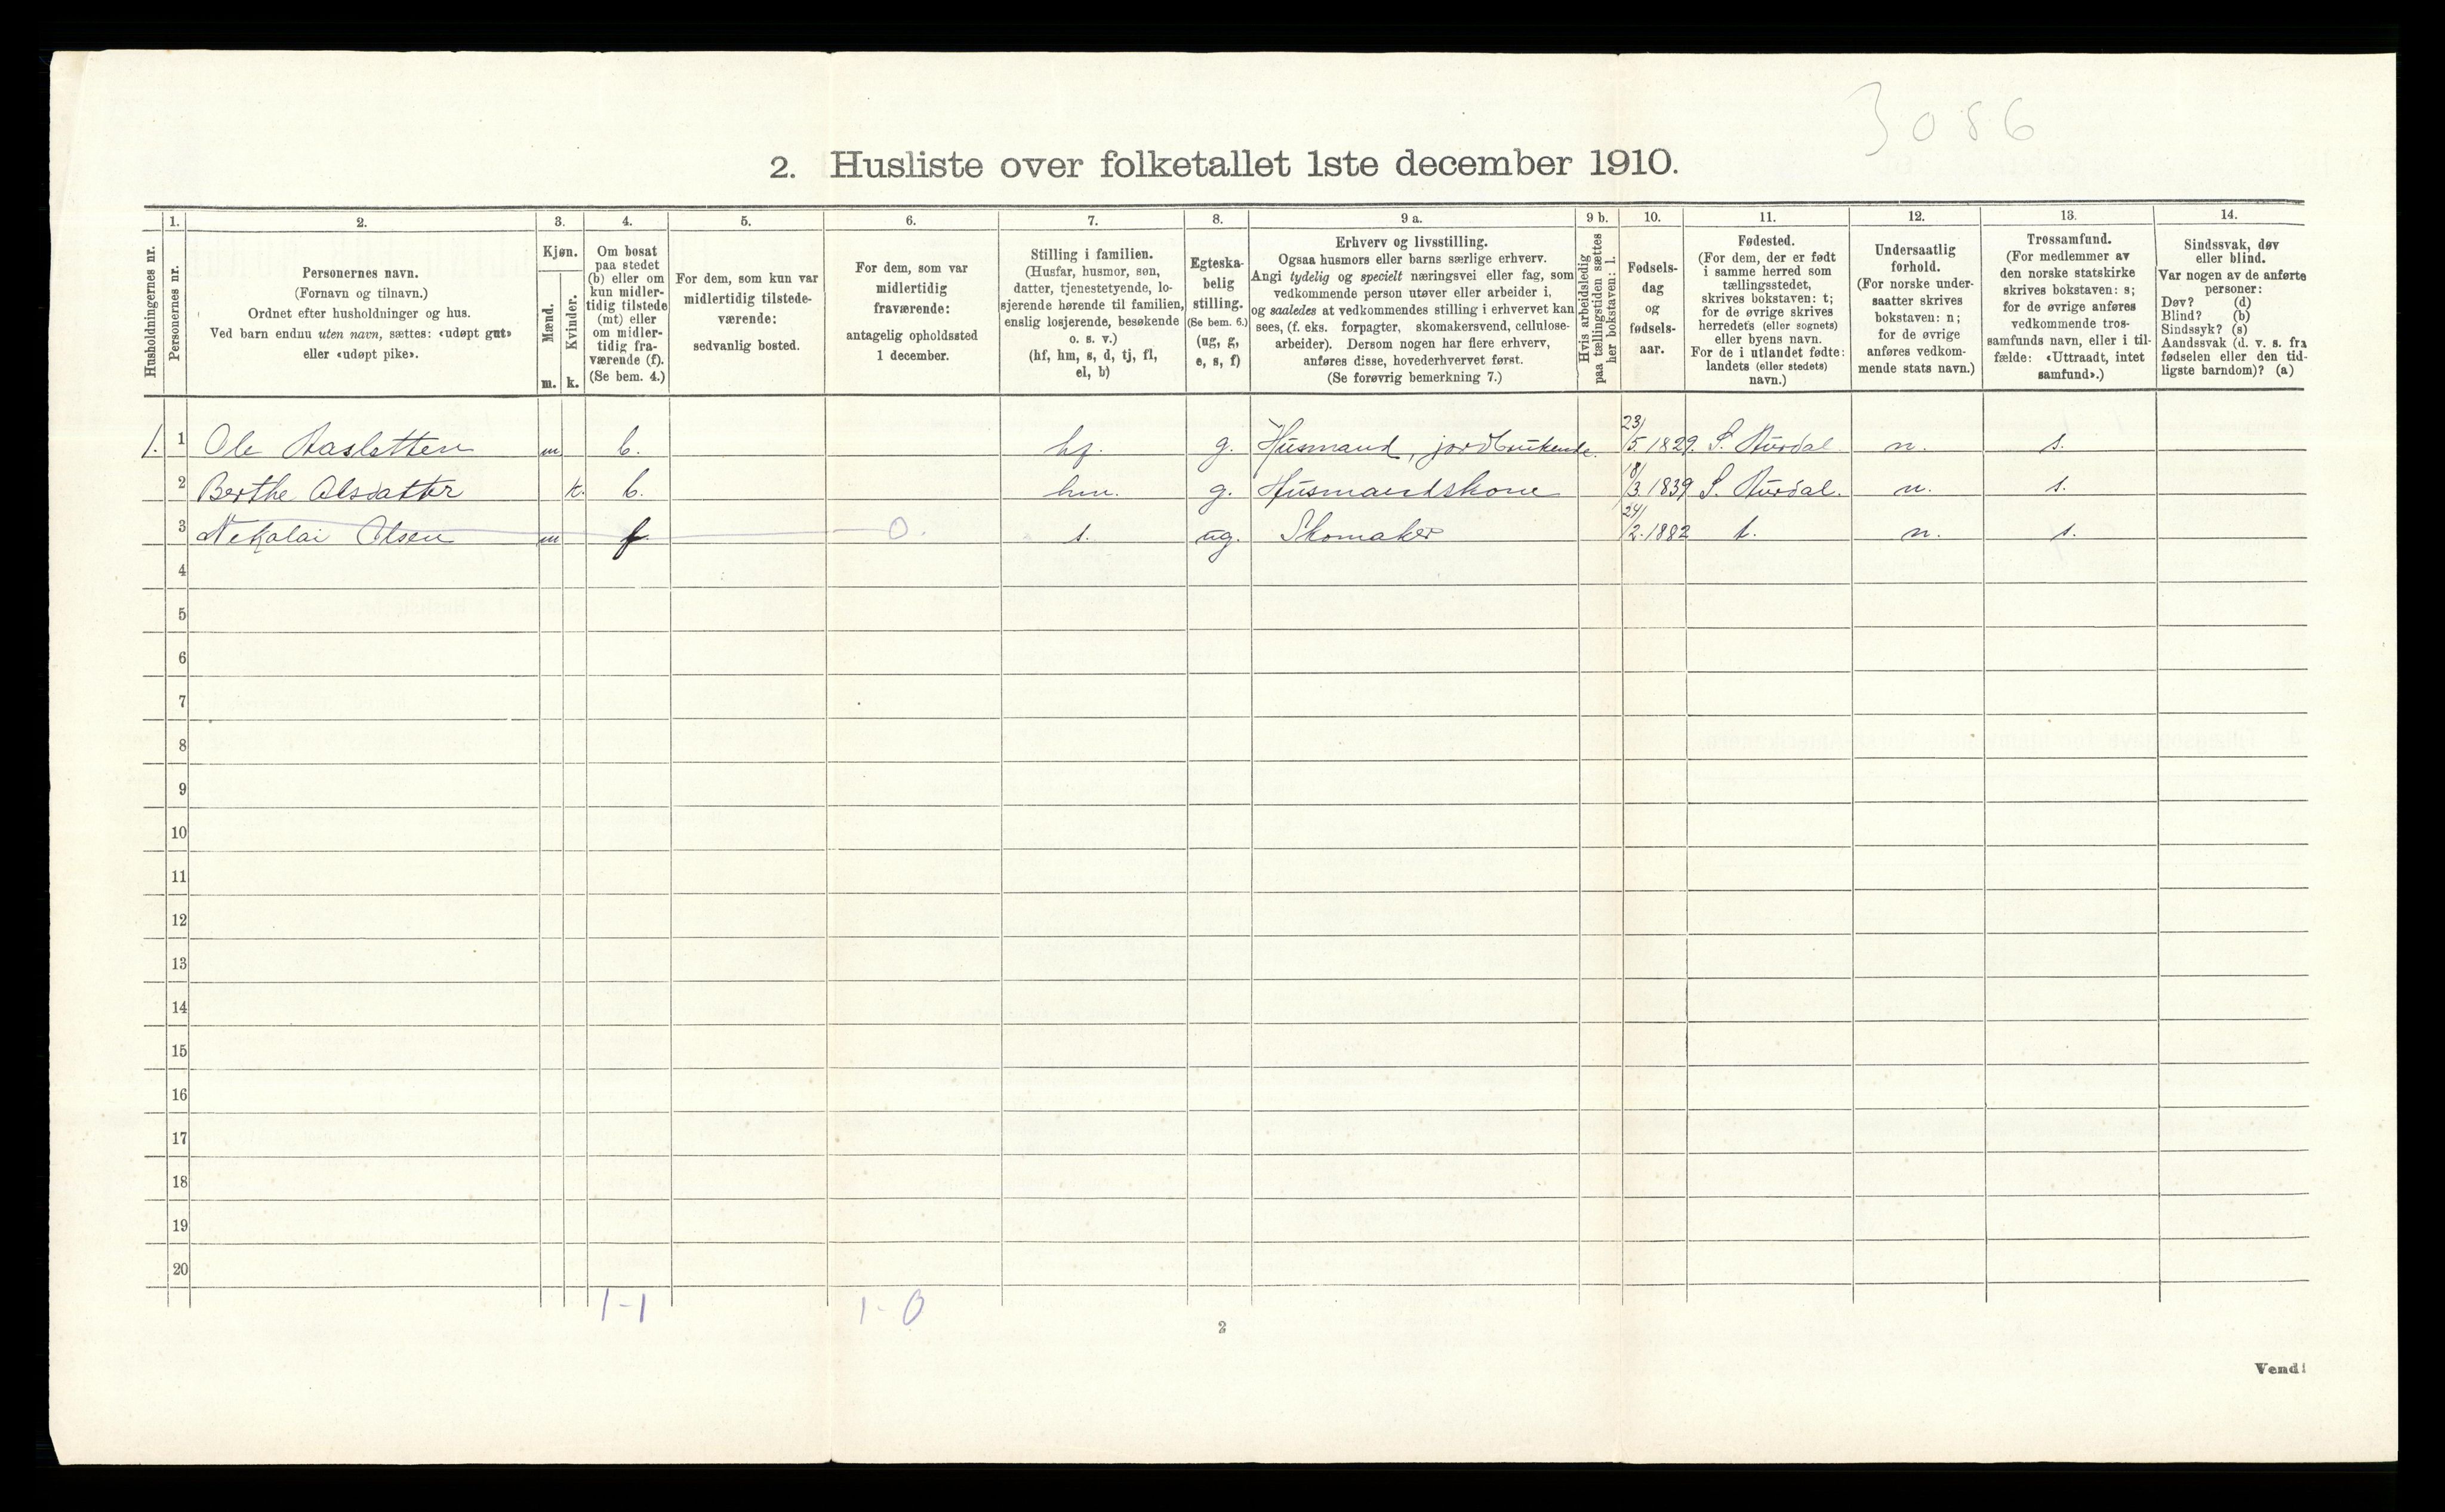 3086
2. Husliste over folketallet 1ste december 1910.
1. 2. 3. 4. 5. 6. 7. 8. 9 a. 9 b. 10. 11. 12. 13. 14.
Husholdningernes nr.
Personernes nr.
Personernes navn.
(Fornavn og tilnavn.)
Ordnet efter husholdninger og hus.
Ved barn endnu uten navn, sættes: «udøpt gut»
eller «udøpt pike».
Kjøn.
Mænd.
Kvinder.
m. k.
Om bosat
paa stedet
(b) eller om
kun midler-
tidig tilstede
(mt) eller
om midler-
tidig fra-
værende (f).
(Se bem. 4.)
For dem, som kun var
midlertidig tilstede-
værende:
sedvanlig bosted.
For dem, som var
midlertidig
fraværende:
antagelig opholdssted
1 december.
Stilling i familien.
(Husfar, husmor, søn,
datter, tjenestetyende, lo-
sjerende hørende til familien,
enslig losjerende, besøkende
o. s. v.)
(hf, hm, s, d, tj, fl,
el, b)
Egteska-
belig
stilling.
(Se bem. 6.)
(ug, g,
e, s, f)
Erhverv og livsstilling.
Ogsaa husmors eller barns særlige erhverv.
Angi tydelig og specielt næringsvei eller fag, som
vedkommende person utøver eller arbeider i,
og saaledes at vedkommendes stilling i erhvervet kan
sees, (f. eks. forpagter, skomakersvend, cellulose-
arbeider). Dersom nogen har flere erhverv,
anføres disse, hovederhvervet først.
(Se forøvrig bemerkning 7.)
Hvis arbeidsledig
paa tællingstiden sættes
her bokstaven: l.
Fødsels-
dag
og
fødsels-
aar.
Fødested.
(For dem, der er født
i samme herred som
tællingsstedet,
skrives bokstaven: t;
for de øvrige skrives
herredets (eller sognets)
eller byens navn.
For de i utlandet fødte:
landets (eller stedets)
navn.)
Undersaatlig
forhold.
(For norske under-
saatter skrives
bokstaven: n;
for de øvrige
anføres vedkom-
mende stats navn.)
Trossamfund.
(For medlemmer av
den norske statskirke
skrives bokstaven: s;
for de øvrige anføres
vedkommende tros-
samfunds navn, eller i til-
fælde: «Uttraadt, intet
samfund».)
Sindssvak, døv
eller blind.
Var nogen av de anførte
personer:
Døv? (d)
Blind? (b)
Sindssyk? (s)
Aandssvak (d. v. s. fra
fødselen eller den tid-
ligste barndom)? (a)
1. 1 Ole Aasletten m b. hf. g. Husmand, jordbrukende. 23/5. 1829. S. Aurdal n. s.
2 Berthe Olsdatter k. b. hm. g. Husmandskone /3. 1839 S. Aurdal. n. s.
3 Nekolai Olsen m f 0. s. ug. Skomaker 24/2. 1882 t. n. s.
4
5
6
7
8
9
10
11
12
13
14
15
16
17
18
19
20
1-1 1-0
2
Vend!